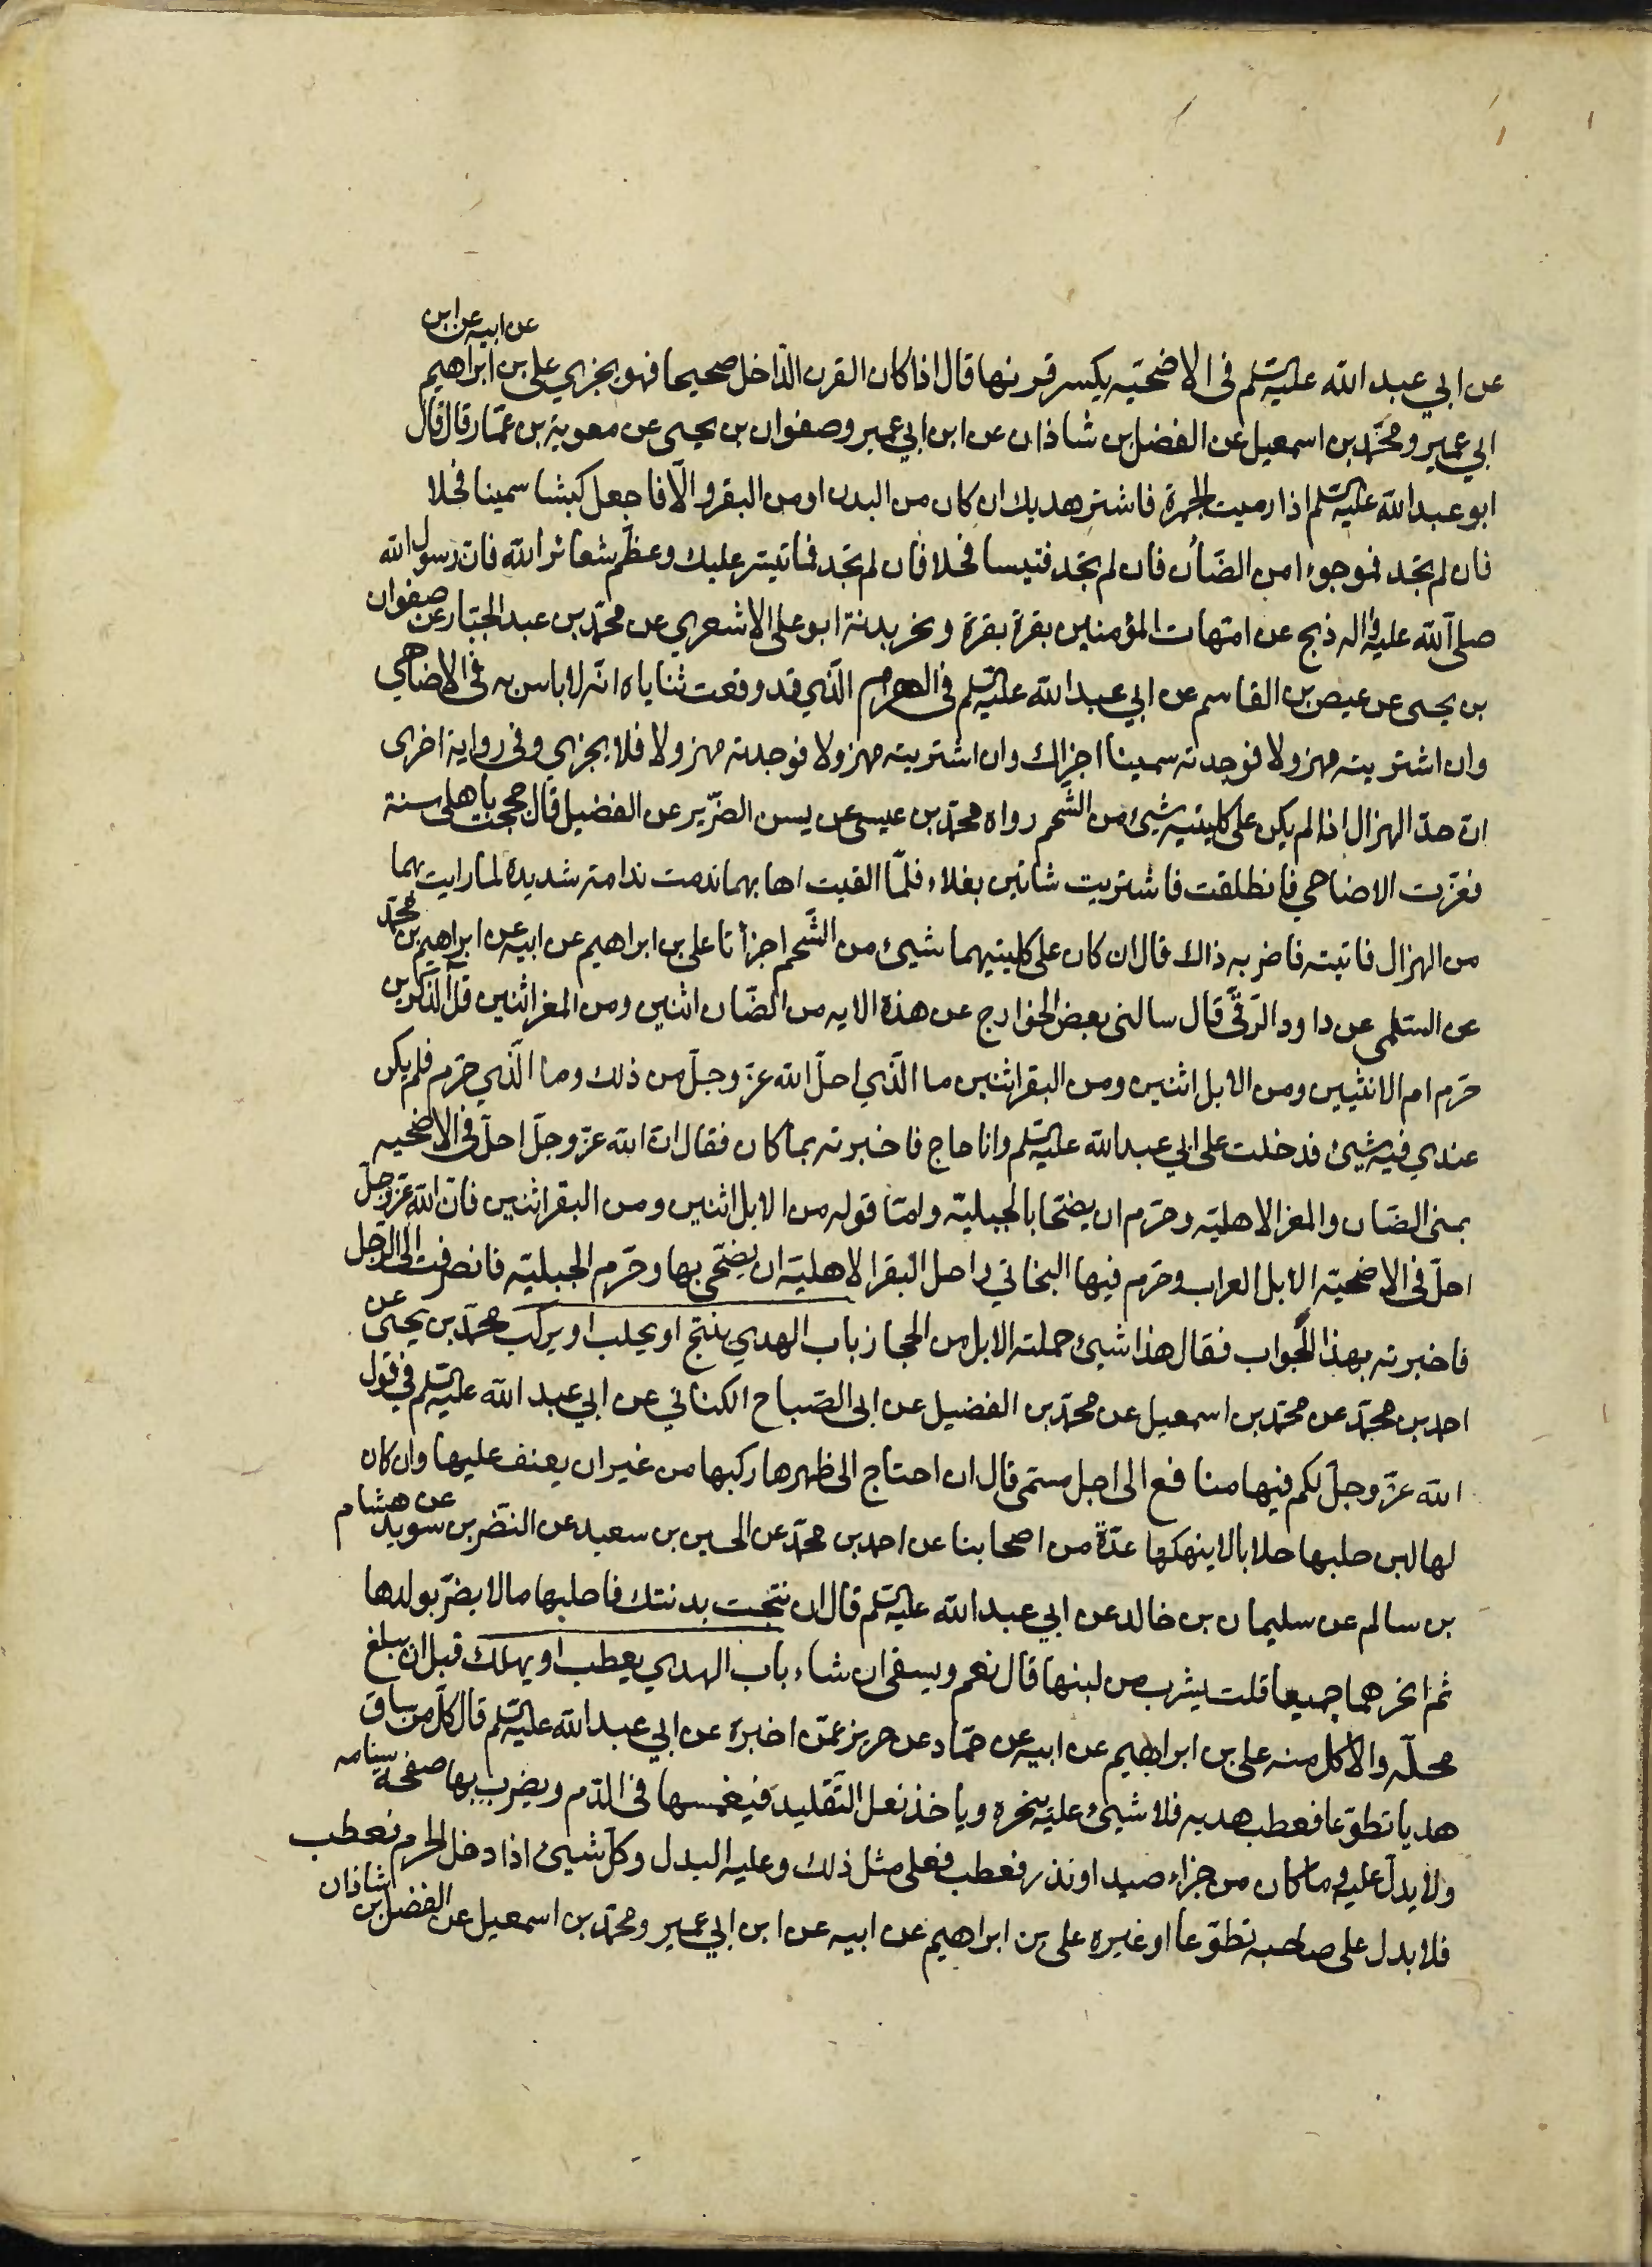 عن ابي عبد الله عليه السلم فى الاضحيّه يكسر قرنها قال اذا كان القرن الدّاخل صحيحا فهو يجزي على بن ابراهيم عن ابيه عن ابن
ابي عمير ومحمّد بن اسمعيل عن الفضل بن شاذان عن ابن ابي عمير وصفوان بن يحيى عن معوية بن عمّار قال قال
ابو عبد الله عليه السلم اذا رميت الجمرة فاشتر هديك ان كان من البدن او من البقر والّا فاجعل كبشا سمينا فحلا
فان لم تجد فموجوءا من الضّأن فان لم تجد فتيسا فحلا فان لم تجد فما تيسّر عليك وعظّم شعائر الله فان رسول الله
صلى الله عليه واله ذبح عن امّهات المؤمنين بقرة بقرة ونحر بدنة ابو على الاشعري عن محمّد بن عبد الجبّار عن صفوان
بن يحيى عن عيص بن القاسم عن ابي عبد الله عليه السلم فى الهرم الّذي قد وقعت ثناياه انّه لا باس به فى الاضاحي
وان اشتريته مهزولا فوجدته سمينا اجزاك وان اشتريته مهزولا فوجدته مهزولا فلا يجزي وفى رواية اخرى
انّ حدّ الهزال اذا لم يكن على كليتيه شيئ من الشّحم رواه محمّد بن عيسى عن يسن الضّرير عن الفضيل قال حججت باهلى سنة
فعزّت الاضاحي فانطلقت فاشتريت شاتين بغلاء فلمّا القيت اهابهما ندمت ندامة شديدة لما رايت بهما
من الهزال فاتيته فاخبرته ذاك قال ان كان على كليتيهما شيئ من الشّحم اجزأتا على بن ابراهيم عن ابيه عن ابراهيم بن محمّد
عن السّلمي عن داود الرّقّى قال سالنى بعض الخوارج عن هذة الايه من الضّان اثنين ومن المعز اثنين قل آلذّكرين
حرّم ام الانثيين ومن الابل اثنين ومن البقر اثنين ما الّذي احلّ الله عزّ وجلّ من ذلك وما الّذي حرّم فلم يكن
عندي فيه شيئ فدخلت على ابي عبد الله عليه السلم وانا حاج فاخبرته بما كان فقال انّ الله عزّ وجلّ احلّ فى الاضحيه
بمنى الضّان والمعز الاهليّه وحرّم ان يضحّا بالجبليّه وامّا قوله من الابل اثنين ومن البقر اثنين فانّ الله عزّ وجلّ
احلّ فى الاضحيّه الابل العراب وحرّم فيها البخاتي واحل البقر الاهليّة ان يضحّى بها وحرّم الجبليّه فانصرفت الى الرّجل
فاخبرته بهذا الجواب فقال هذا شيئ حملته الابل من الحجاز باب الهدي ينتج او يحلب او يركب محمّد بن يحيى عن
احمد بن محمّد عن محمّد بن اسمعيل عن محمّد بن الفضيل عن ابى الصّباح الكناني عن ابي عبد الله عليه السلم في قول
الله عزّ وجلّ لكم فيها منافع الى اجل مسمّى قال ان احتاج الى ظهرها ركبها من غير ان يعنف عليها وان كان
لها لبن حلبها حلابا لا ينهكها عدّة من اصحابنا عن احمد بن محمّد عن الحسين بن سعيد عن النّضر بن سويد عن هشام
بن سالم عن سليمان بن خالد عن ابي عبد الله عليه السلم قال ان نتجت بدنتك فاحلبها ما لا يضرّ بولدها
ثم انحرهما جميعا قلت يشرب من لبنها قال نعم ويسقى ان شاء باب الهدي يعطب او يهلك قبل ان يبلغ
محلّه والاكل منه على بن ابراهيم عن ابيه عن حمّاد عن حريز عمّن اخبره عن ابي عبد الله عليه السلم قال كلّ من ساق
هديا تطوّعا فعطب هديه فلا شيئ عليه ينحره وياخذ نعل التّقليد فيغمسها فى الدّم ويضرب بها صفحة سنامه
ولا بدل عليه وما كان من جزاء صيد او نذر فعطب فعلى مثل ذلك وعليه البدل وكلّ شيئ اذا دخل الحرم فعطب
فلا بدل على صاحبه تطوّعا او غيره على بن ابراهيم عن ابيه عن ابن ابي عمير ومحمّد بن اسمعيل عن الفضل بن شاذان